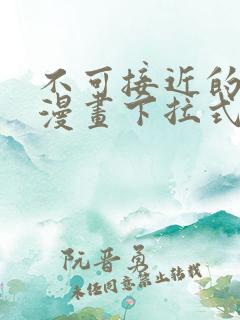 不可接近的
漫畫下拉式
阮晋勇
未经同意禁止转载